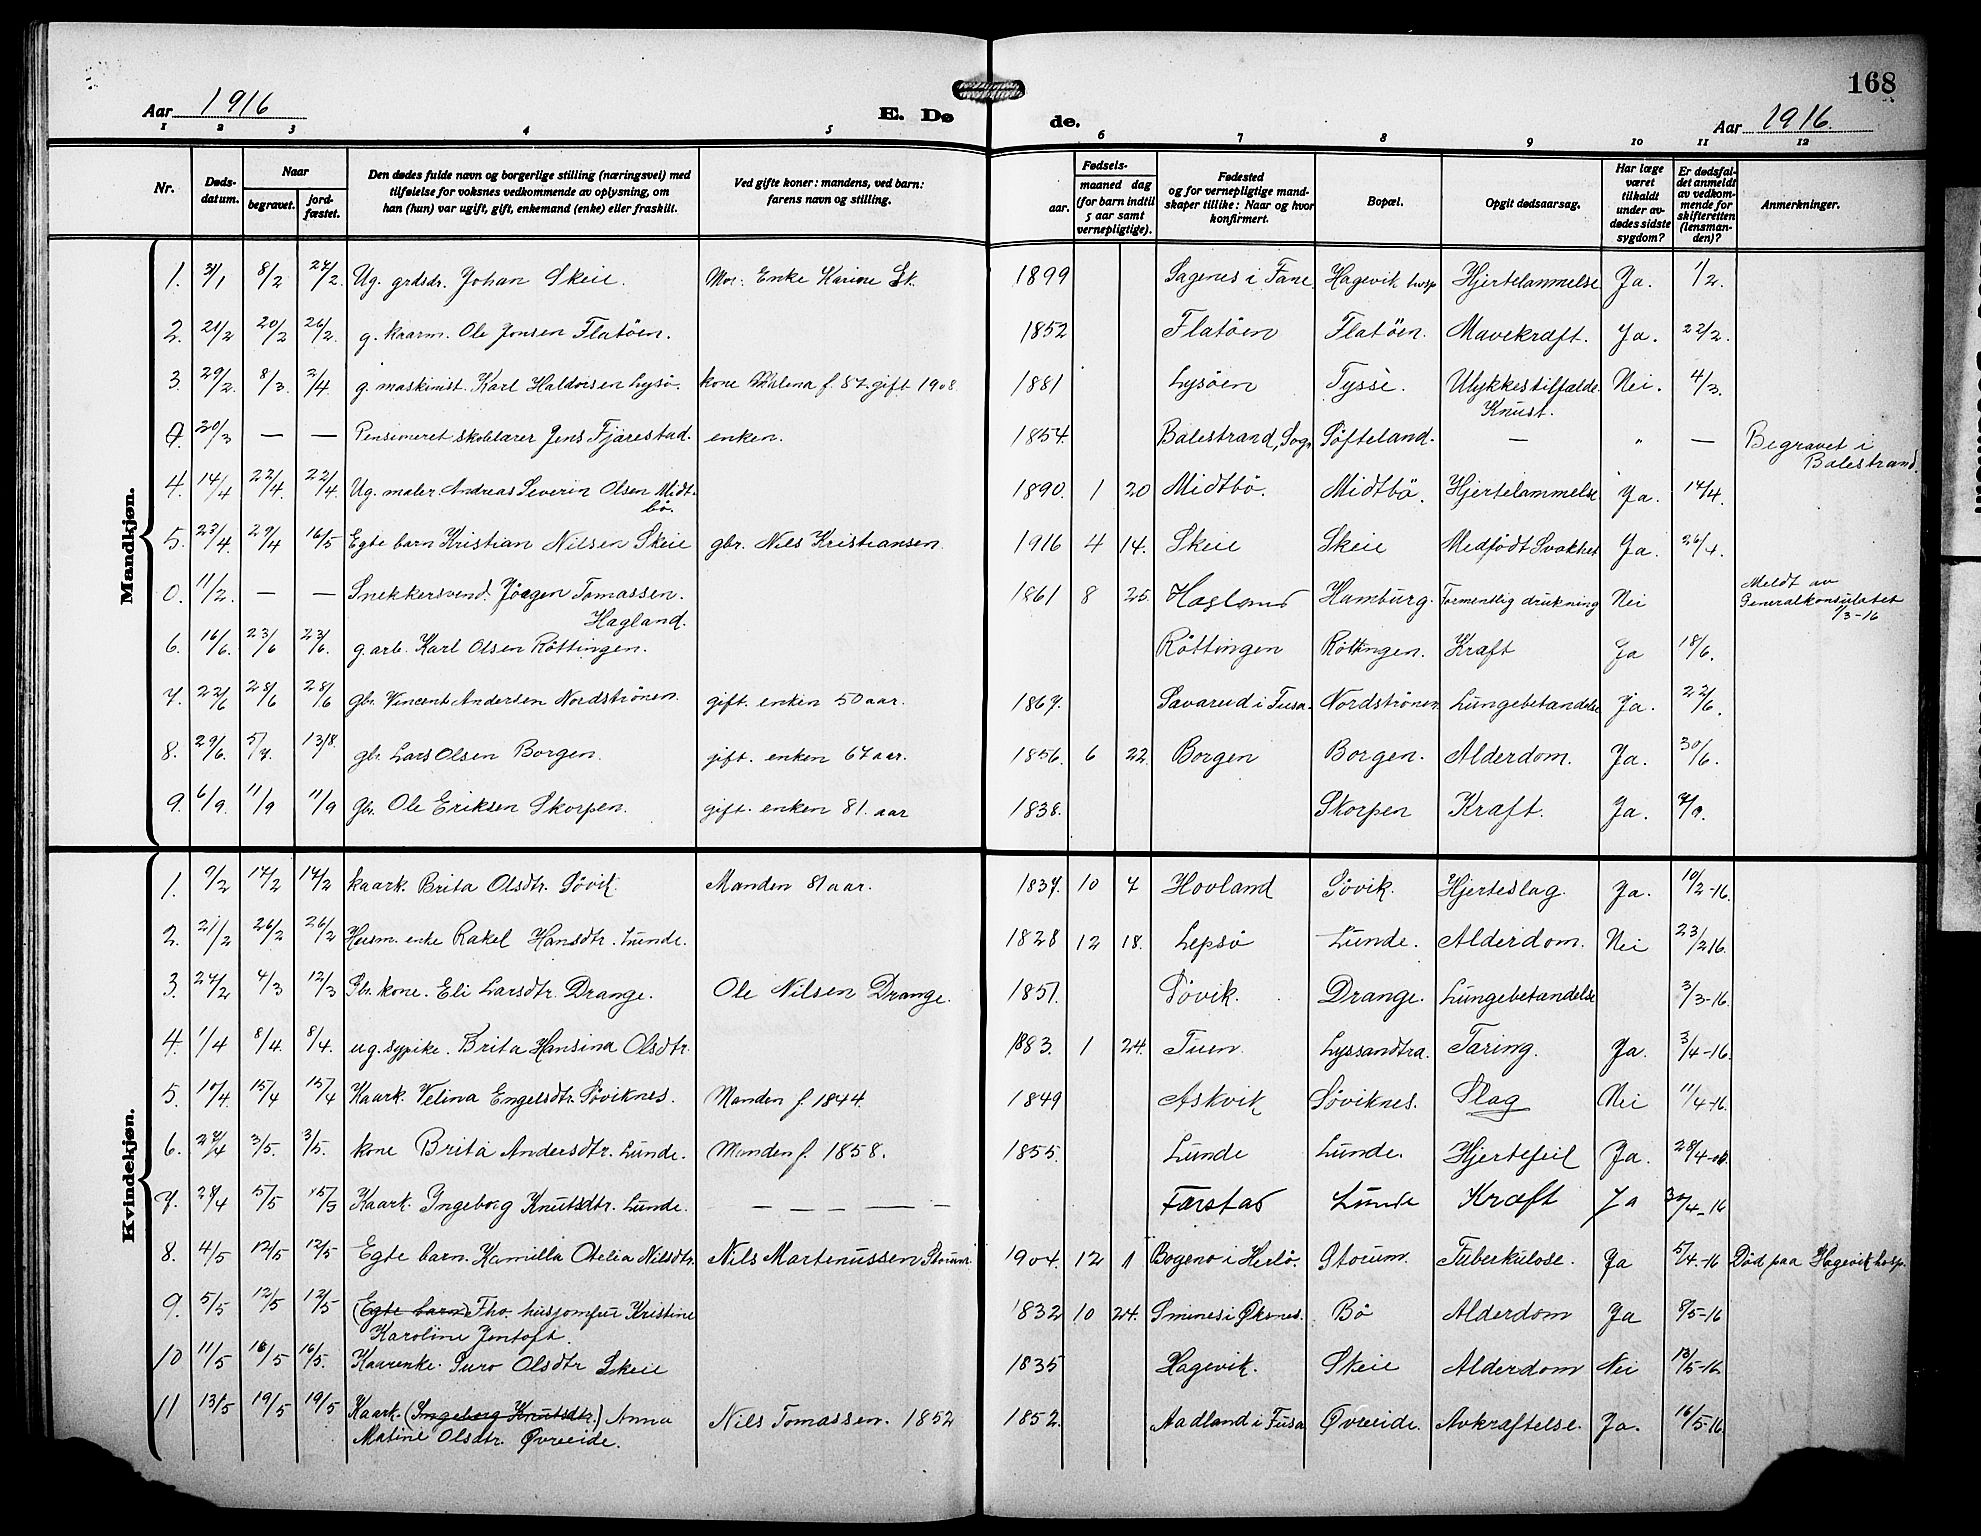 168
Aar 1916
E. Dø de.
Aar 1916.
1 2 3 4 5 6 7 8 9 10 11 12
Nr. Døds-datum. Naar begravet. jord-fæstet. Den dødes fulde navn og borgerlige stilling (næringsvei) med tilføielse for voksnes vedkommende av oplysning, om han (hun) var ugift, gift, enkemand (enke) eller fraskilt. Ved gifte koner: mandens, ved barn: farens navn og stilling. Fødsels- aar. maaned dag (for barn indtil 5 aar samt vernepligtige). Fødested og for vernepligtige mand-skaper tillike: Naar og hvor konfirmert. Bopæl. Opgit dødsaarsag. Har læge været tilkaldt under av-dødes sidste sygdom? Er dødsfal-det anmeldt av vedkom-mende for skifteretten (lensman-den)? Anmerkninger.
Mandkjøn.
1. 31/1 8/2 27/2. Ug. grdsdr. Johan Skeie. Mor: Enke Karine Sk. 1899 Sagenes i Fane Hagevik hosp Hjertelammelse Ja. 1/2.
2. 21/2 20/2 26/2. g. kaarm. Ole Jonsen Flatøen. 1852 Flatøen Flatøen. Mavekræft. Ja. 22/2.
3. 29/2. 8/3. 2/4. g. maskinist. Karl Haldorsen Lysø. kone Malena f. 87. gift 1908. 1881 Lysøen Tysse. Ulykkestilfælde. Nei. 4/3.
Knust.
0. 20/3 — — Pensioneret skolelærer Jens Fjærestad. enken. 1854. Balestrand, Sogn Søfteland. — " — Begravet i
Balestrand.
4. 14/4 22/4. 22/4. Ug. maler Andreas Severin Olsen Midt-
bø. 1890. 1 20 Midtbø. Midtbø. Hjertelammelse Ja. 14/4.
5. 23/4. 29/4 16/5 Egte barn Kristian Nilsen Skeie gbr. Nils Kristiansen. 1916 4 14. Skeie Skeie Medfødt Svakhet Ja. 26/4.
0. 11/2. — — Snekkersvend. Jørgen Tomassen.
Hagland. 1861 8 25. Hagland Hamburg. Formentlig drukning Nei Meldt av
Generalkonsulatet
1/3-16
6. 16/6. 23/6 23/6. g. arb. Karl Olsen Røttingen. Røttingen Røttingen. Kræft Ja 18/6.
7. 22/6 28/6 28/6 gbr. Vincent Andersen Nordstrønen. gift. enken 50 aar. 1867. Savarud i Fusa. Nordstrønen Lungebetændelse Ja. 22/6.
8. 29/6. 5/7. 13/8. gbr. Lars Olsen Borgen. gift. enken 67 aar. 1856. 6 22. Borgen Borgen. Alderdom. Ja. 30/6.
9. 6/9. 11/9 11/9 Gbr. Ole Eriksen Skorpen. gift. enken 81. aar 1838. Skorpen Kræft. Ja. 7/9.
Kvindekjøn.
1. 9/2 17/2 17/2 kaark. Brita Olsdtr. Søvik Manden 81 aar. 1837. 10 7 Hovland Søvik. Hjerteslag. Ja. 10/2-16.
2. 21/2 26/2 26/2 Husm. enke Rakel Hansdtr. Lunde. 1828 12 18. Lepsø Lunde. Alderdom. Nei 23/2 16.
3. 24/2 4/3 12/3 Gbr. kone. Eli Larsdtr. Drange. Ole Nilsen Drange. 1851. Søvik. Drange. Lungebetændelse 3/3-16.
4. 1/4 8/4. 8/4. ug. sypike. Brita Hansina Olsdtr. 1883. 1 24. Tuen. Lyssandtræ. Tæring. Ja. 3/4-16.
5. 10/4. 15/4 15/4 Kaark. Velina Engelsdtr. Søviknes. Manden f. 1844. 1849 Askvik Søviknes. Slag Nei 11/4-16.
6. 27/4 3/5. 3/5. kone Brita Andersdtr. Lunde. Manden f. 1858. 1855. Lunde Lunde. Hjertefeil Ja. 28/4-16.
7. 28/4 5/5 5/5 Kaark. Ingeborg Knutsdtr. Lunde. — — — — — Farstad Lunde Kræft Ja 30/4-16
8. 4/5 12/5 12/5 Egte barn. Kamilla Otelia Nilsdtr. Nils Martenussen Storum. 1904. 12 1 Bogeno i Herlø. Storum. Tuberkulose. Ja 5/4-16 Død paa Hagevik hosp.
9. 5/5 12/5 12/5 (Egte barn) Fho. husjomfru Kristine
Karoline Jentoft. 1832 10 24. Smines i Øksnes. Bø Alderdom Ja 8/5-16
10 11/5 16/5 16/5. Kaarenke. Suro Olsdtr Skeie 1835 Hagevik. Skeie Alderdom Nei 13/5-16
11 13/5 19/5 19/5 Kaark. (Ingeborg Knutsdtr.) Anna
Matine Olsdtr. Øvreeide. Nils Tomassen. 1852 1852. Aadland i Fusa Øvreeide. Avkræftelse. Ja. 16/5-16.